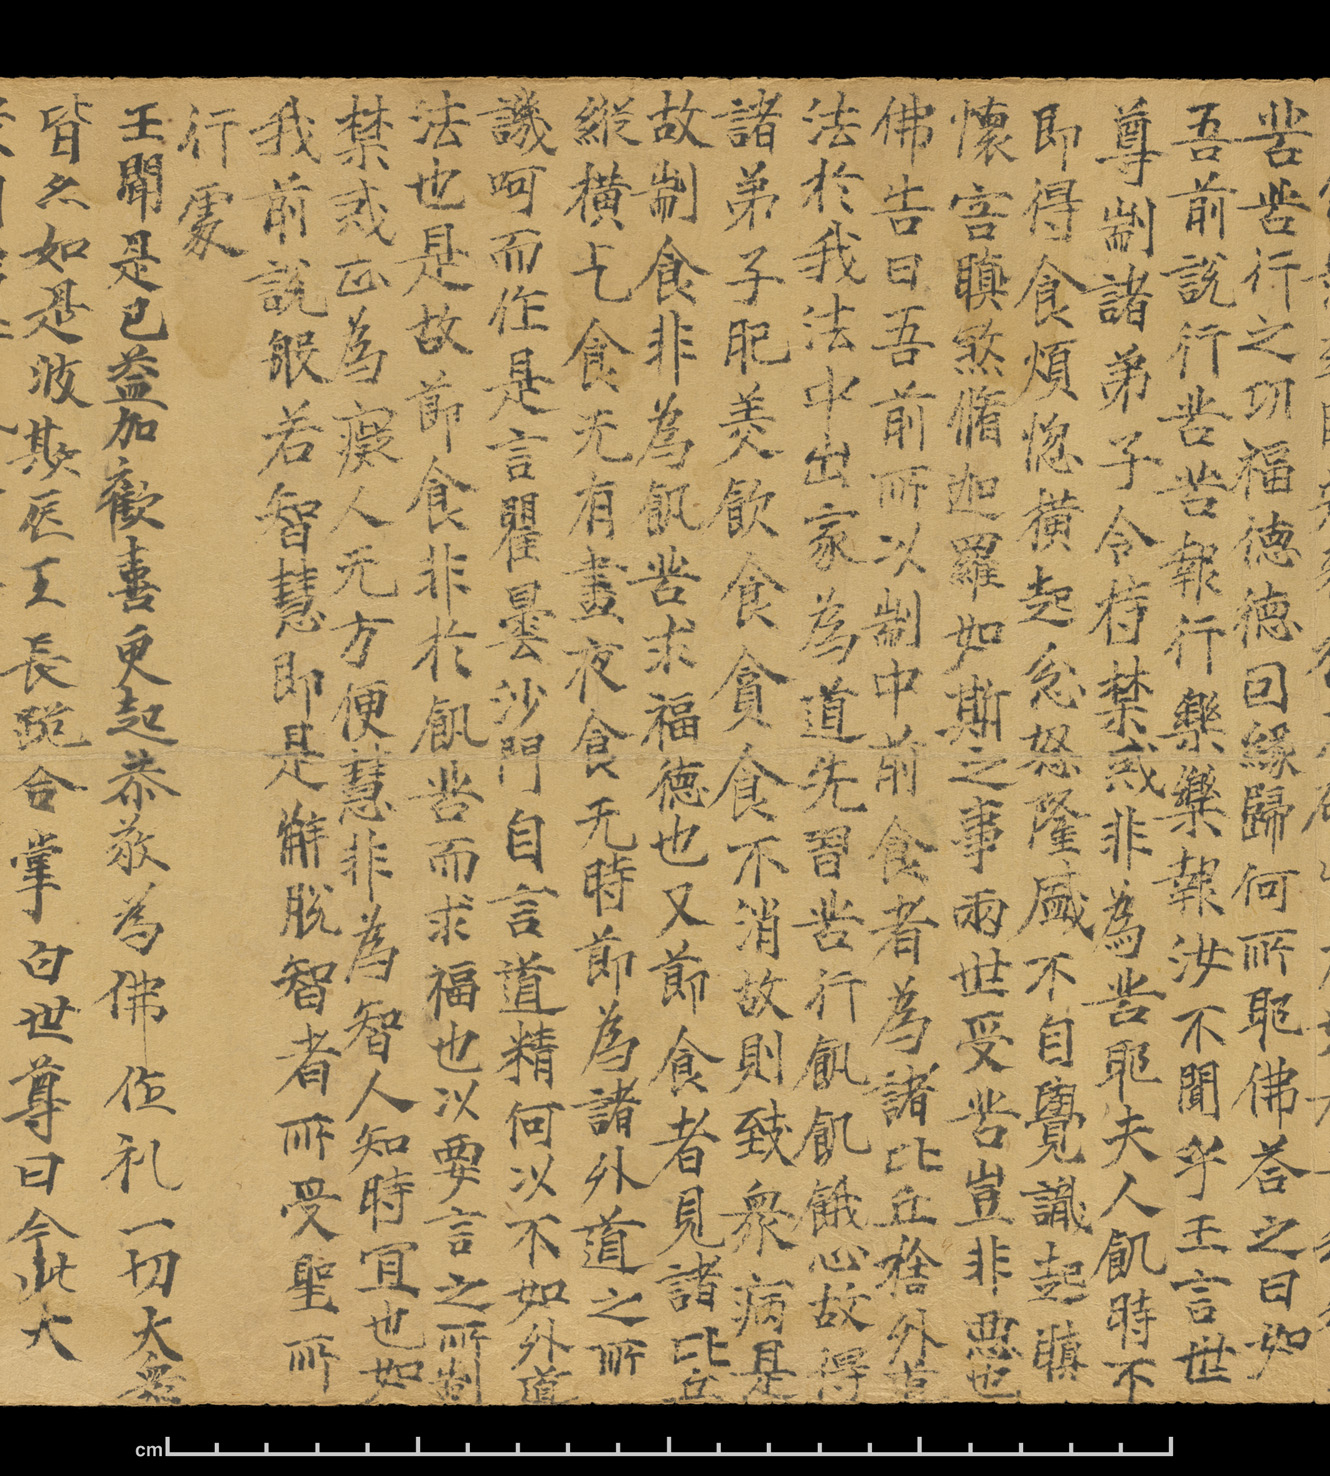 苦苦行之功福德德回緣歸何所耶佛荅之曰如
吾前說行苦苦報行樂樂報汝不聞乎王言世
尊制諸弟子令持禁戒非為苦耶夫人飢時不
即得食煩惚橫起忿怒隆盛不自覺識起瞋
懷害瞋煞脩迦羅如斯之事兩世受苦豈非惡也
佛告曰吾前所以制中前食者為諸比丘捨外道
法於我法中出家為道先習苦行飢飢餓心故得
諸弟子肥美飲食貪食不消故則致衆病是
故制食非為飢苦求福德也又節食者見諸比丘
縱橫乞食无有晝夜食无時節為諸外道之所
譏呵而作是言瞿曇沙門自言道精何以不如外道
法也是故節食非於飢苦而求福也以要言之所制
禁戒正為癡人无方便慧非為智人知時宜也如
我前說般若智慧即是解脫智者所受聖所
行處
王聞是已益加歡喜更起恭敬為佛作礼一切大衆
皆亦如是波斯匿王長跪合掌白世尊曰今此大